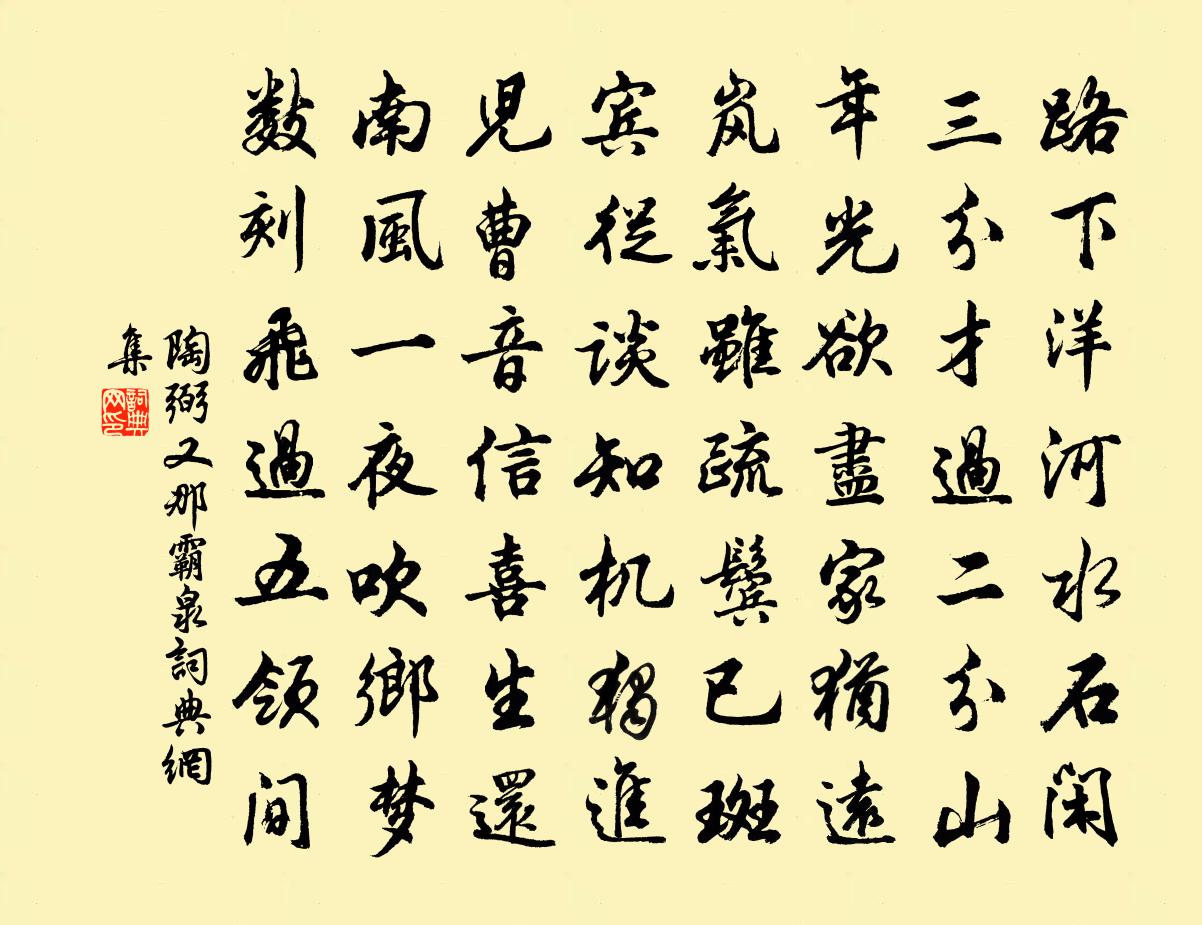 路下洋河水石闲
三分才過二分山
年光欲盡家猶遠
岚氣雖疏鬓已斑
宾從談知机獨進
児曹音信喜生還
南風一夜吹鄉梦
数刻飛過五领间
陶弼又那霸泉詞典網
集
詞典网印